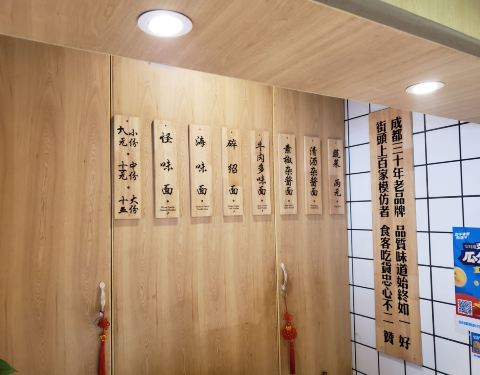 小份 中份 大份
怪味面
海味面
碎绍面
牛肉多味面
素椒杂酱面
蔬菜 两元
成都三十年老品牌 品質味道始終如一 好
街頭上百家模仿者 食客吃貨忠心不二 贊